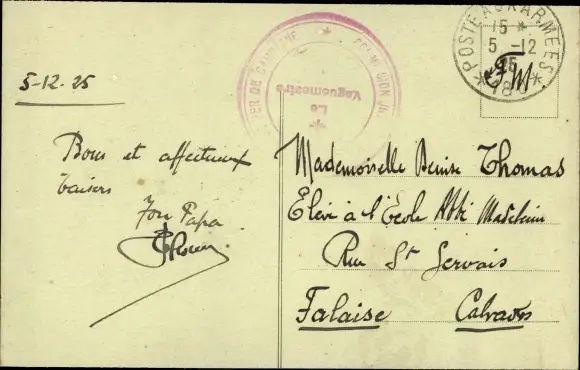 5-12-25
Bons et affectueux
baisers
Ton Papa
Le
Vaguemestre
POSTE AUX ARMEES
15 *
5 -12
25
* 180 *
FM
Mademoiselle Denise Thomas
Elève à l'Ecole Abbé
Rue St Gervais
Falaise Calvados